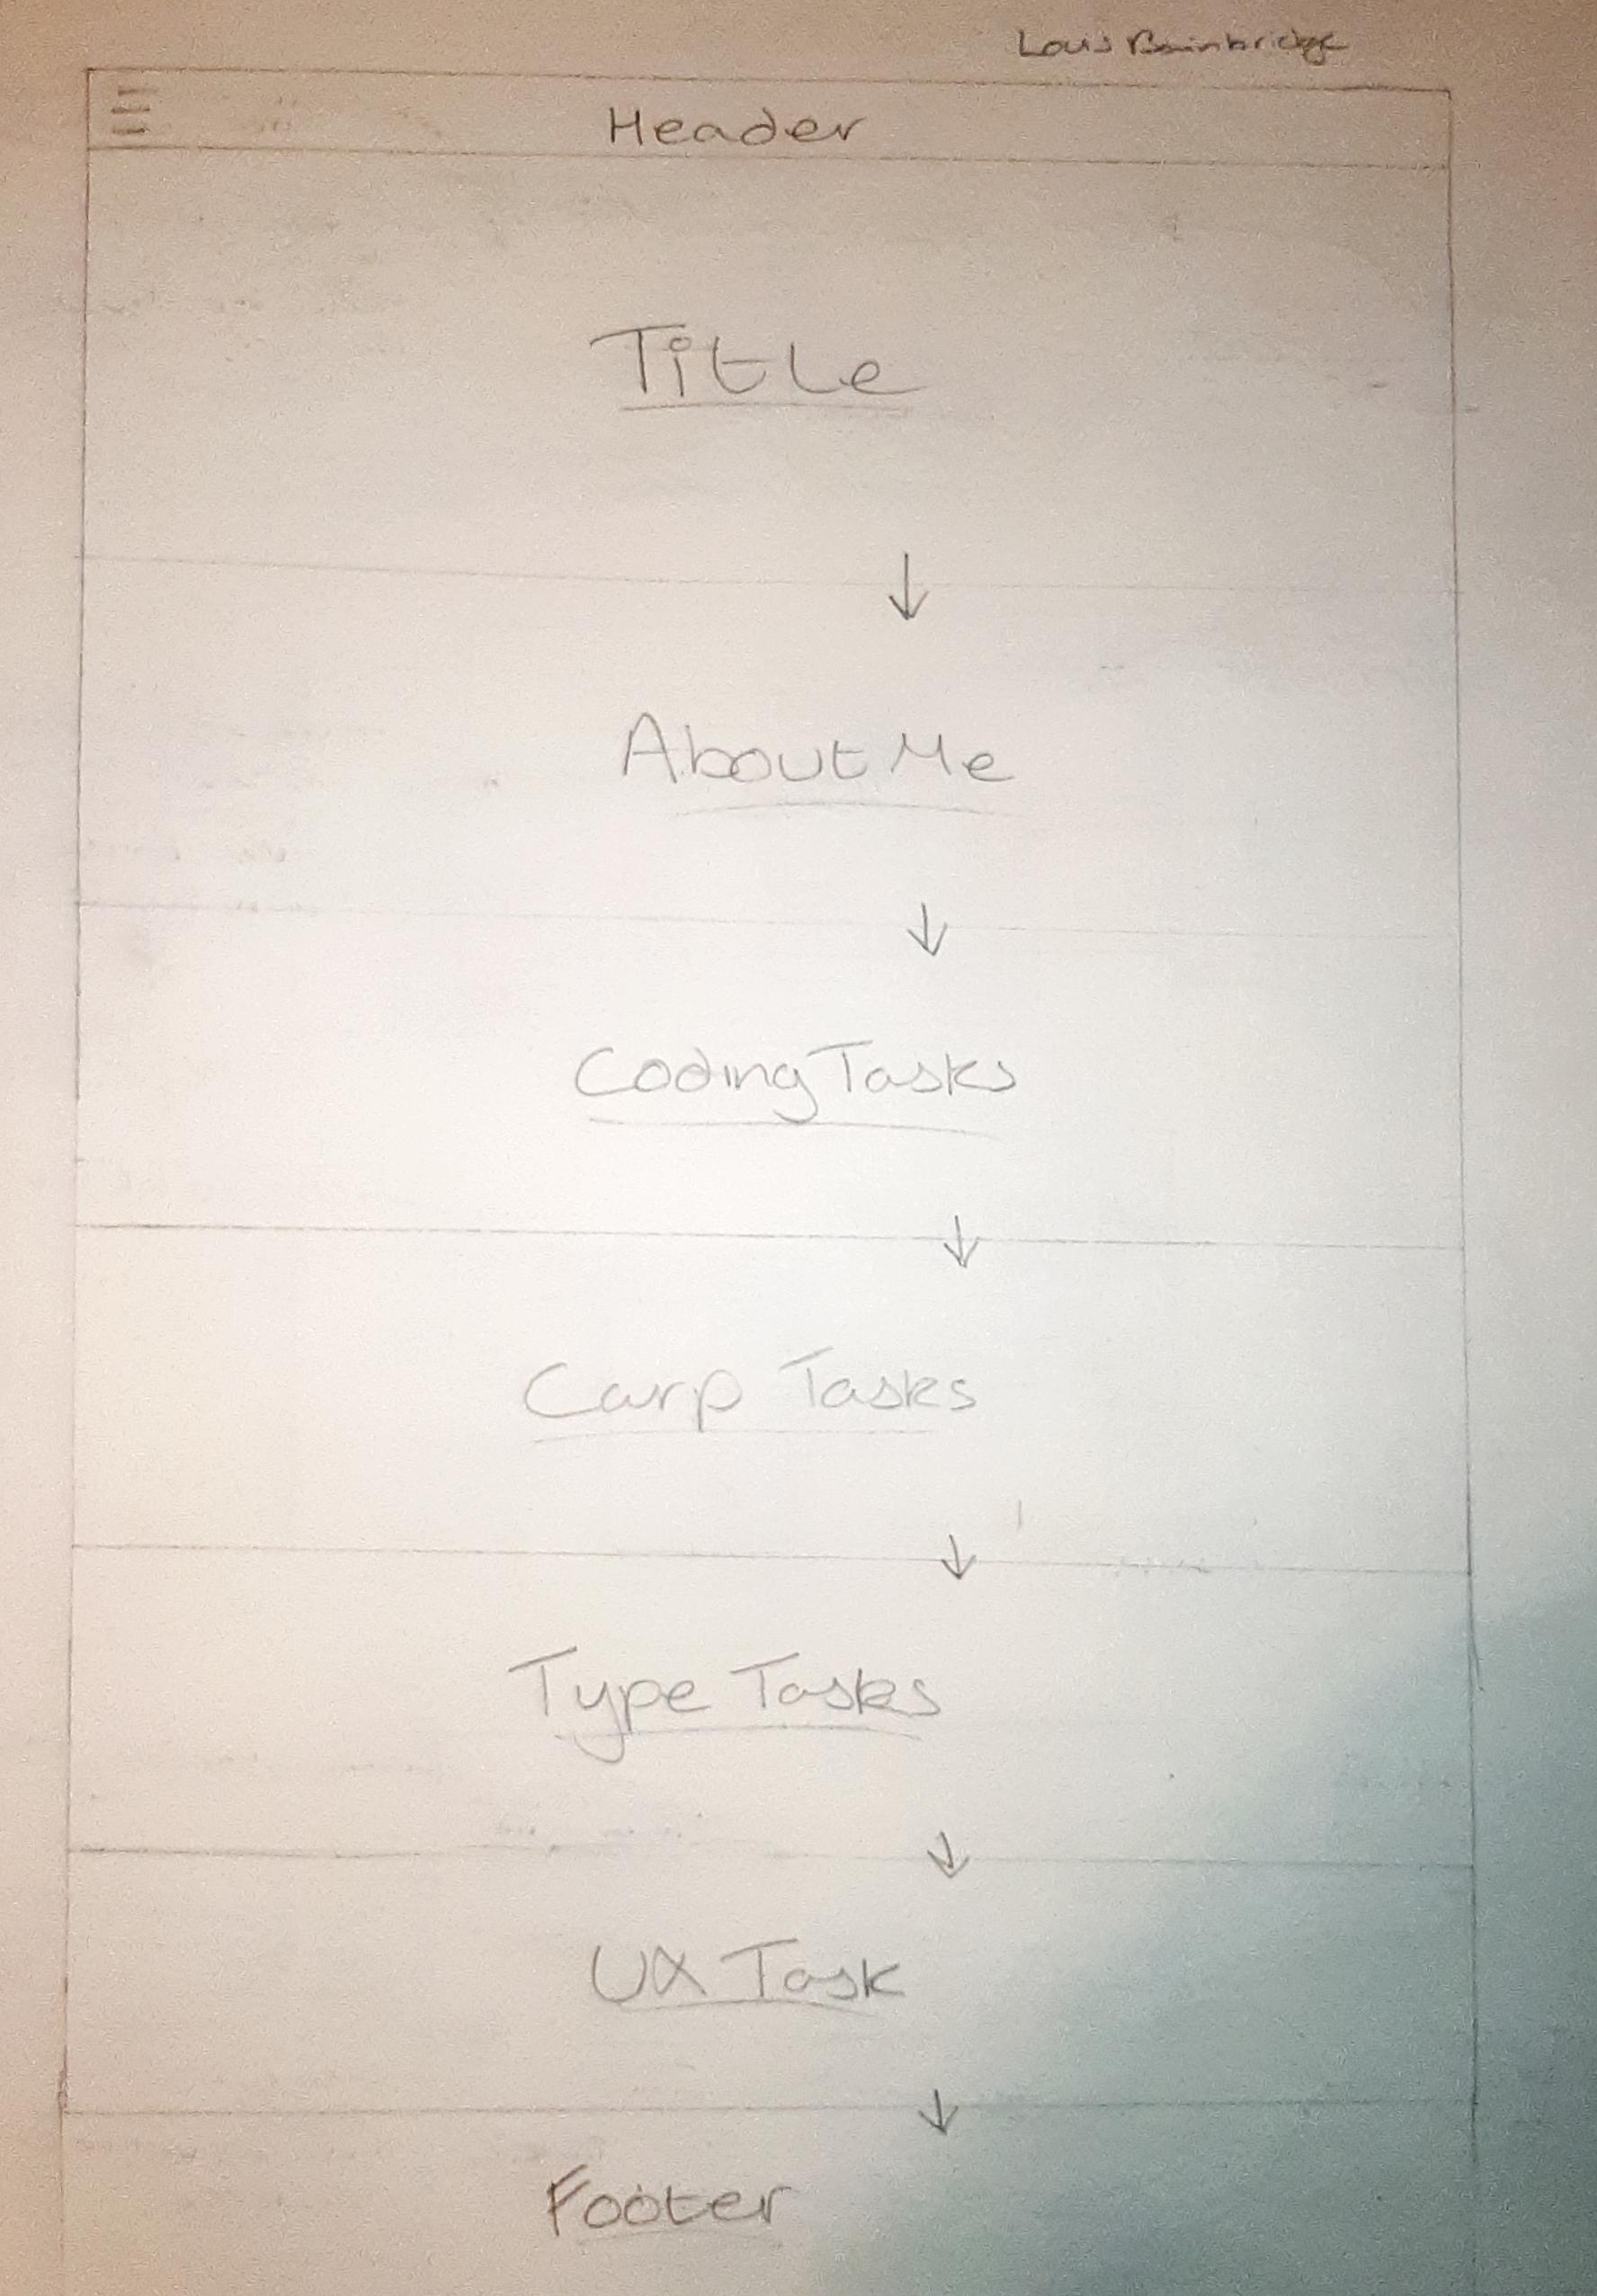 Louis Bainbridge
Header
Title
About Me
Coding Tasks
Carp Tasks
Type Tasks
UX Task
Footer